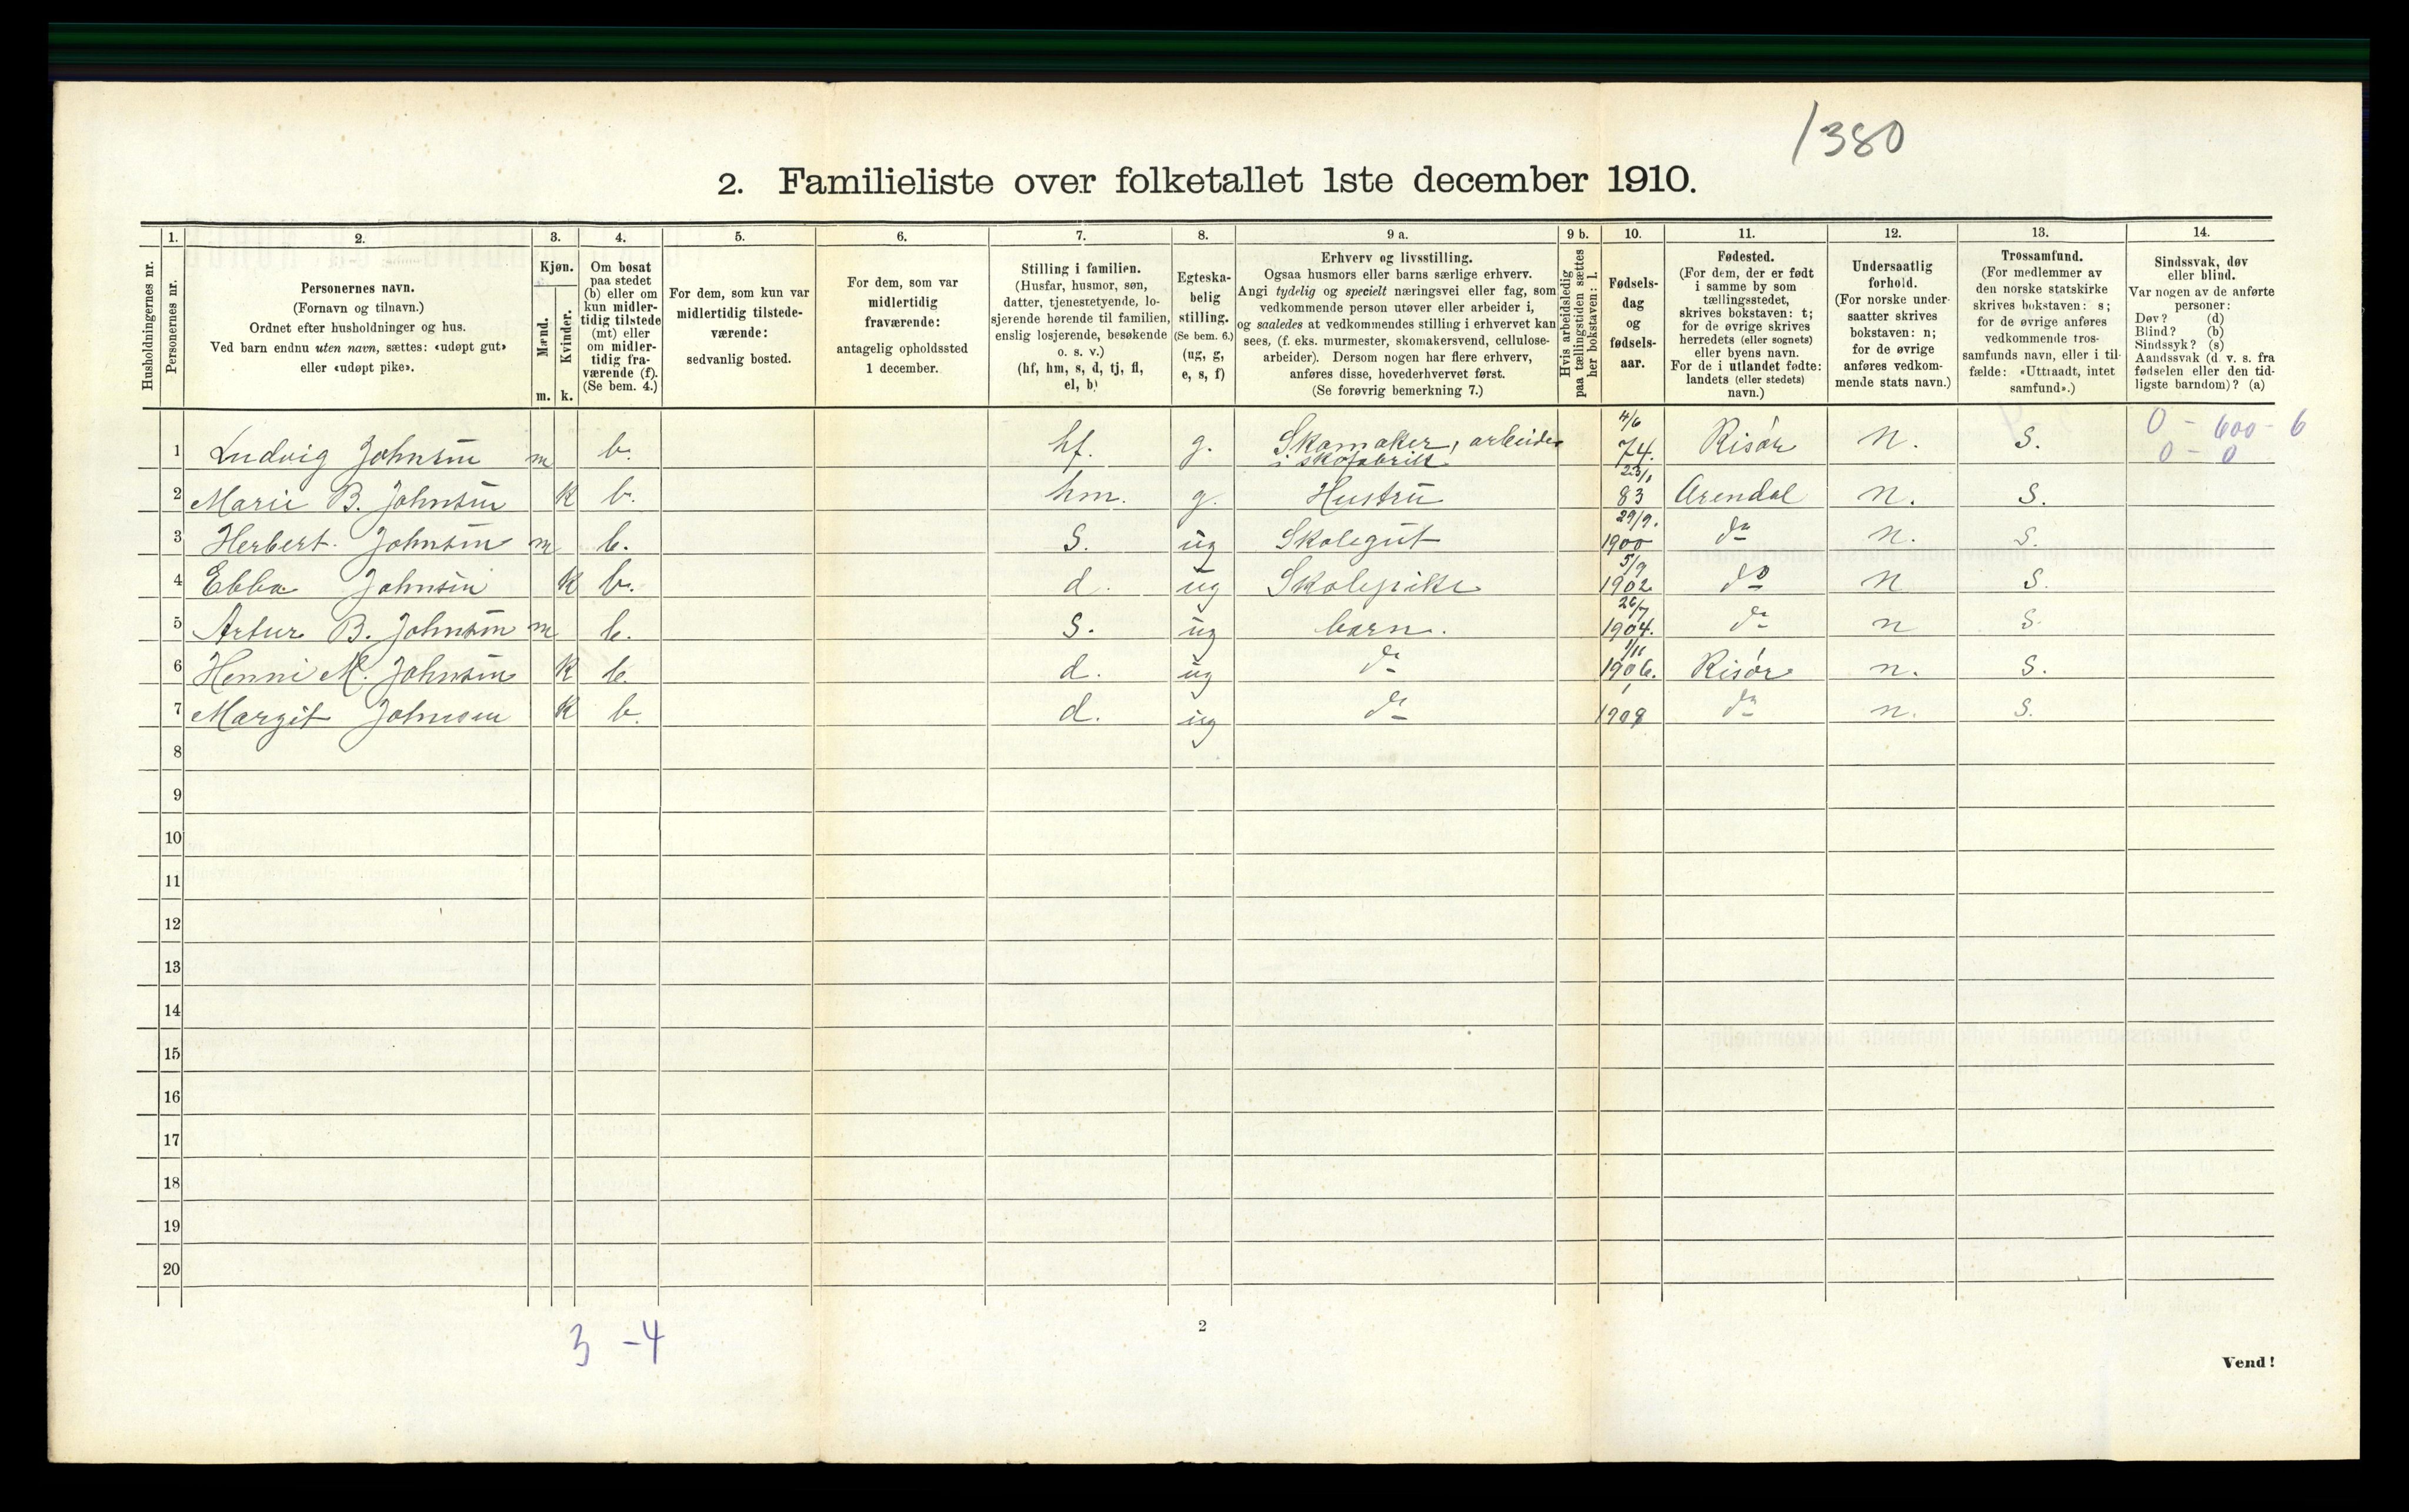 1380
2. Familieliste over folketallet 1ste december 1910.
Husholdningernes nr.
1.
Personernes nr.
2.
Personernes navn.
(Fornavn og tilnavn.)
Ordnet efter husholdninger og hus.
Ved barn endnu uten navn, sættes: «udøpt gut»
eller «udøpt pike».
3.
Kjøn.
Mænd.
Kvinder.
m. k.
4.
Om bosat
paa stedet
(b) eller om
kun midler-
tidig tilstede
(mt) eller
om midler-
tidig fra-
værende (f).
(Se bem. 4.)
5.
For dem, som kun var
midlertidig tilstede-
værende:
sedvanlig bosted.
6.
For dem, som var
midlertidig
fraværende:
antagelig opholdssted
1 december.
7.
Stilling i familien.
(Husfar, husmor, søn,
datter, tjenestetyende, lo-
sjerende hørende til familien,
enslig losjerende, besøkende
o. s. v.)
(hf, hm, s, d, tj, fl,
el, b)
8.
Egteska-
belig
stilling.
(Se bem. 6.)
(ug, g,
e, s, f)
9 a.
Erhverv og livsstilling.
Ogsaa husmors eller barns særlige erhverv.
Angi tydelig og specielt næringsvei eller fag, som
vedkommende person utøver eller arbeider i,
og saaledes at vedkommendes stilling i erhvervet kan
sees, (f. eks. murmester, skomakersvend, cellulose-
arbeider). Dersom nogen har flere erhverv,
anføres disse, hovederhvervet først.
(Se forøvrig bemerkning 7.)
9 b.
Hvis arbeidsledig
paa tællingstiden sættes
her bokstaven: l.
10.
Fødsels-
dag
og
fødsels-
aar.
11.
Fødested.
(For dem, der er født
i samme by som
tællingsstedet,
skrives bokstaven: t;
for de øvrige skrives
herredets (eller sognets)
eller byens navn.
For de i utlandet fødte:
landets (eller stedets)
navn.)
12.
Undersaatlig
forhold.
(For norske under-
saatter skrives
bokstaven: n;
for de øvrige
anføres vedkom-
mende stats navn.)
13.
Trossamfund.
(For medlemmer av
den norske statskirke
skrives bokstaven: s;
for de øvrige anføres
vedkommende tros-
samfunds navn, eller i til-
fælde: «Uttraadt, intet
samfund».)
14.
Sindssvak, døv
eller blind.
Var nogen av de anførte
personer:
Døv? (d)
Blind? (b)
Sindssyk? (s)
Aandssvak (d. v. s. fra
fødselen eller den tid-
ligste barndom)? (a)
1 Ludvig Johnsen m b. hf. g. Skomaker, arbeider i skofabrikk 4/6 74. Risör n. s. 0 - 600 - 6
0 - 0
2 Marie B. Johnsen k b. hm. g. Hustru 23/1 83 Arendal n. s.
3 Herbert Johnsen m b. s. ug Skolegut 29/9. 1900 do n. s.
4 Ebba Johnsen k b. d. ug Skolepike 5/9 1902 do n s.
5 Artur B. Johnsen m b. s. ug barn. 26/7 1904. do n s.
6 Henni M. Johnsen k b. d. ug do 1/11 1906. Risör n. s.
7 Margit Johnsen k b. d. ug do 1909 do n. s.
8
9
10
11
12
13
14
15
16
17
18
19
20
3 - 4
2
Vend!